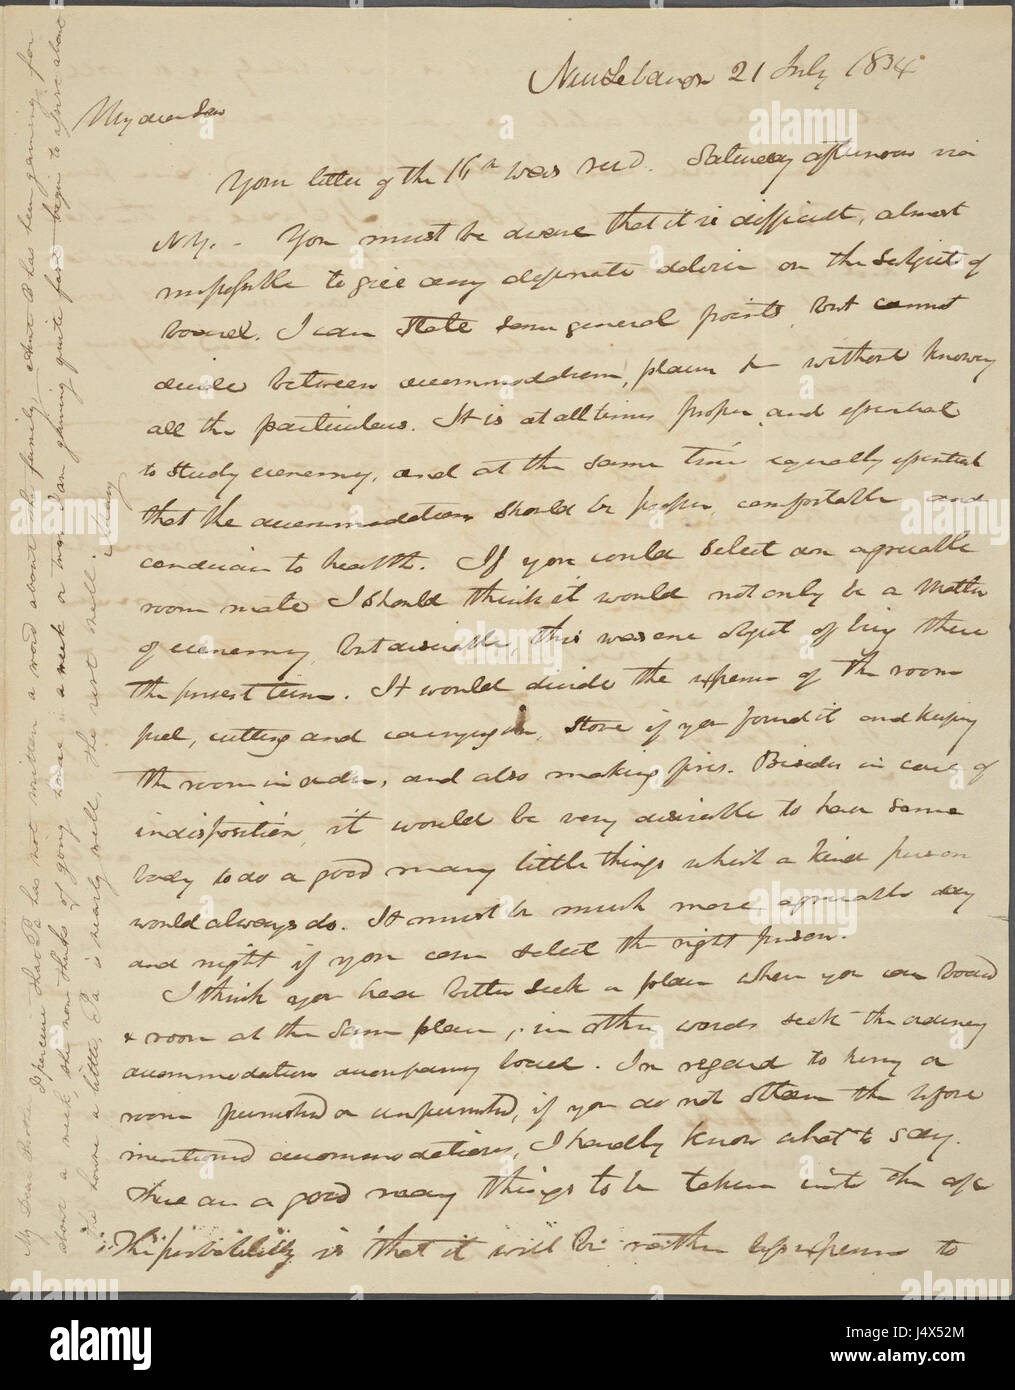 New Lebanon 21 July 1834
My dear Son
Your letter of the 16th was recd. Saturday afternoon via
N.Y. - You must be aware that it is difficult, almost
impossible to give any definate advice on the subject of
board. I can state some general points, but cannot
decide between accommodations, places &c without knowing
all the particulars. It is at all times proper and essential
to study economy, and at the same time equally essential
that the accommodations should be proper, comfortable and
conducive to health. If you could select an agreeable
room mate I should think it would not only be a matter
of economy, but desireable, this was one object of being there
the present term. It would divide the expense of the room
fuel, cutting and carrying in, stove if you found it and keeping
the room in order, and also making fires. Besides in case of
indisposition, it would be very desirable to have some
body to do a good many little things which a kind person
would always do. It must be much more agreeable day
and night if you can select the right person.
I think you had better seek a place where you can board
& room at the same place, in other words seek the ordinary
accommodations accompanying board. In regard to hiring a
room furnished or unfurnished, if you do not obtain the before
mentioned accommodations, I hardly know what to say.
There are a good many things to be taken into the a/c
The probability is that it will be rather less expense to
My Dear Brother I perceive that Pa has not written a word about the family, Aunt B has been gaining for
about a week, she now thinks of going home in a week or two. I am gaining quite fast begin to drive about
the house a little, Pa is nearly well, the rest well.
alamy
J4X52M
www.alamy.com